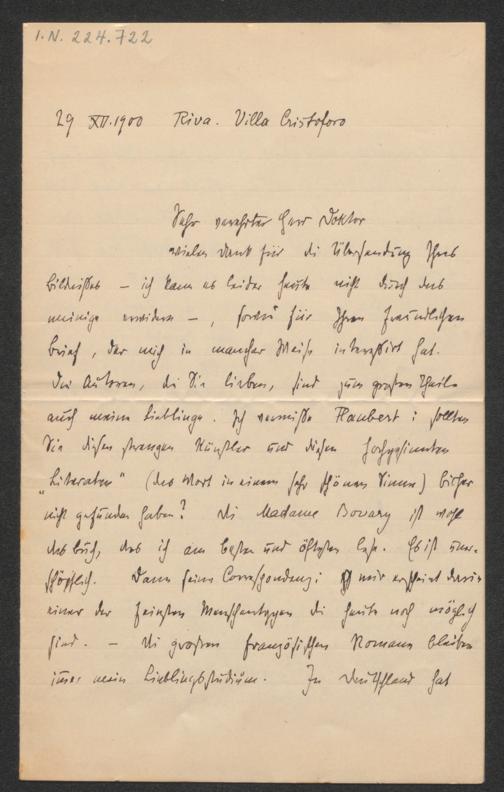 I.N. 224.722
29 XII. 1900 Riva. Villa Cristoforo
Sehr verehrter Herr Doktor
vielen Dank für die Übersendung Ihres
Bildnißes – ich kann es leider heute nicht durch das
meinige erwidern –, sowie für Ihren freundlichen
Brief, der mich in mancher Weise interessirt hat.
Die Autoren, die Sie lieben, sind zum großen Theile
auch meine Lieblinge. Ich vermiße Flaubert: sollten
Sie diesen strengen Künstler und diesen hochgesinnten
"Literaten" (das Wort in einem sehr schönen Sinne) bisher
nicht gefunden haben? Die Madame Bovary ist wohl
das Buch, das ich am besten und öftesten las. Es ist uner-
schöpflich. Dann seine Correspondenz: mir erscheint darin
einer der feinsten Menschentypen die heute noch möglich
sind. – Die großen französischen Romane bleiben
immer mein Lieblingsstudium. In Deutschland hat